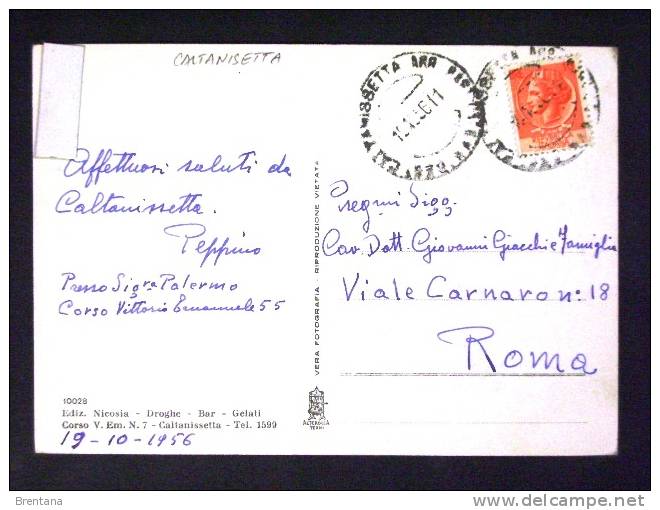 CALTANISETTA
Affettuosi saluti da
Caltanissetta.
Peppino
Presso Sig.ra Palermo
Corso Vittorio Emanuele 55
10028
Ediz. Nicosia - Droghe - Bar - Gelati
Corso V. Em. N. 7 - Caltanissetta - Tel. 1599
19-10-1956
VERA FOTOGRAFIA - RIPRODUZIONE VIETATA
ALTEROCCA
TERNI
CALTANISSETTA
Pregmi Sigg.
Cav. Dott. Giovanni Giacchi e Famiglia
Viale Carnaro n: 18
Roma
Brentana
delcampe.net